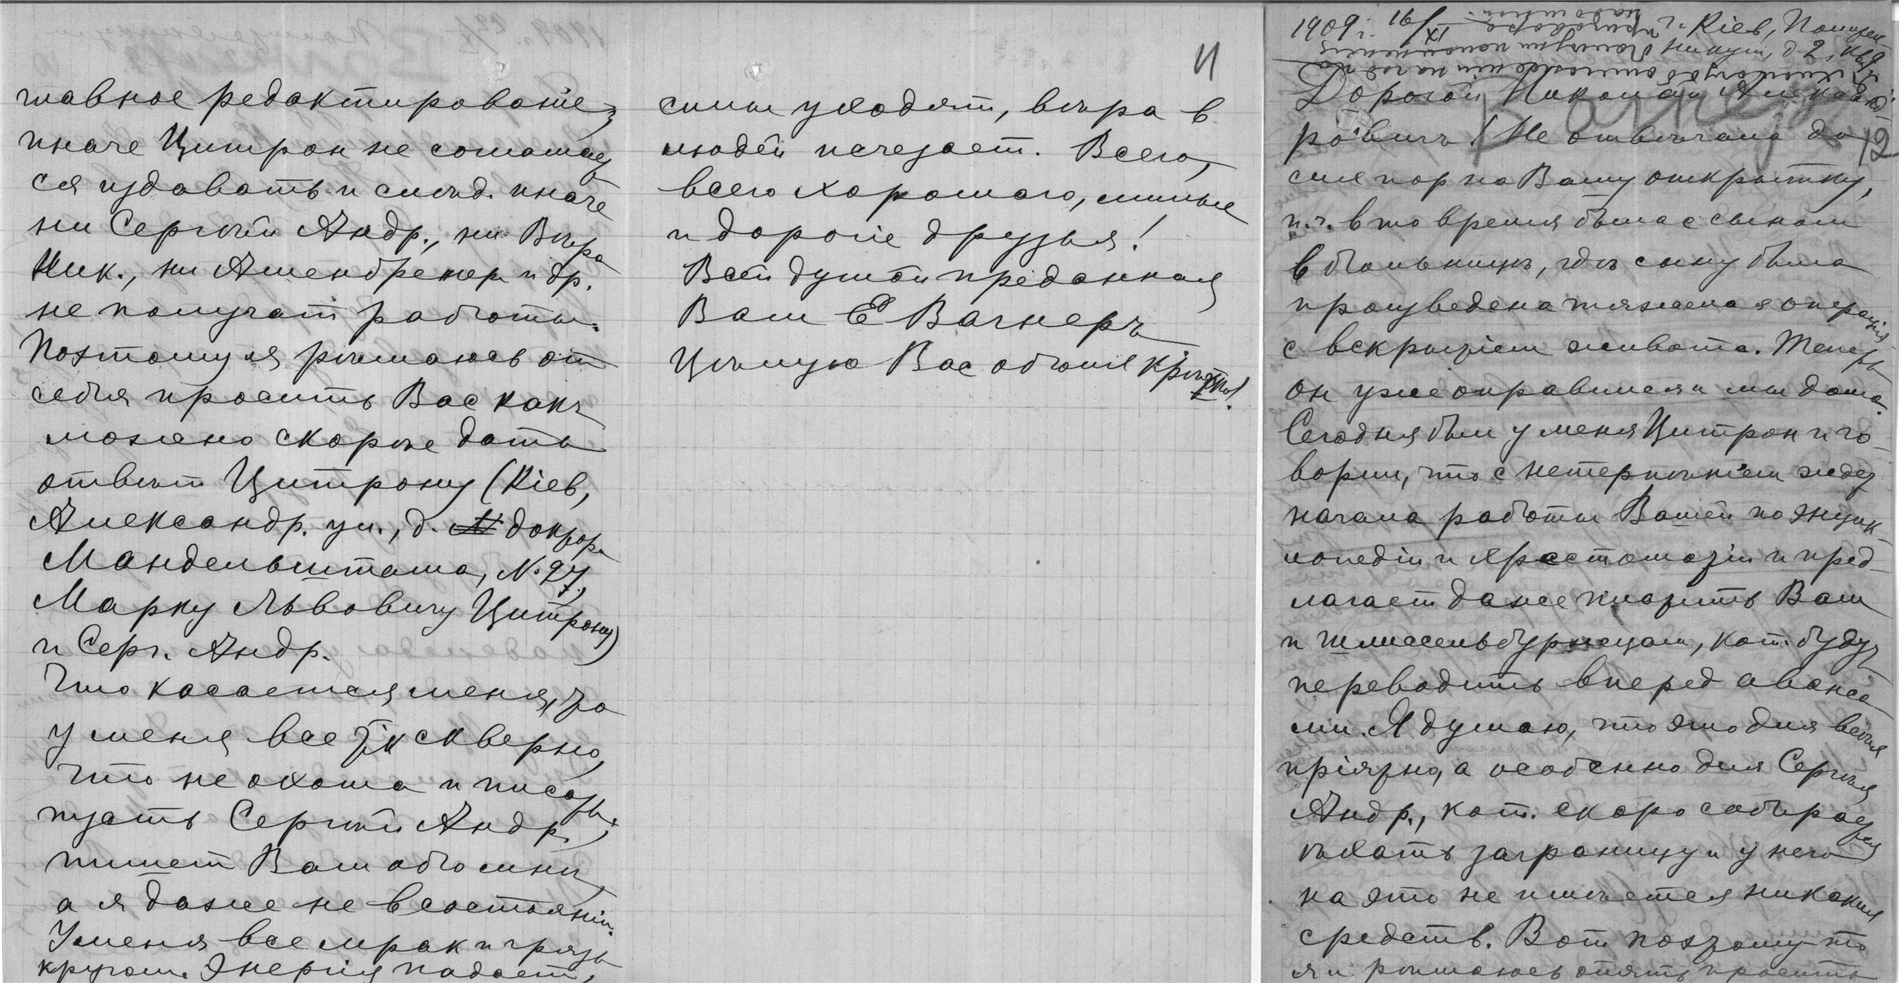 главное редактировате,
иначе Цитрон не соглашает
ся издавать и след. иначе
ни Сергѣй Андр., ни Вѣра
Ник., ни Ашенбренер и др.
не получат работы.
Поэтому я рѣшаюсь от
себя просить Вас какъ
можно скорѣе дать
отвѣт Цитрону (Кіев,
Александр. ул., д. доктора
Мандельштама, N. 27,
Марку Львовичу Цитрону)
и Серг. Андр.
Что касается меня, то
у меня все так скверно,
что не охота и писать.
пусть Сергѣй Андр.
пишет Вам обо мнѣ,
а я даже не в состояніи.
У меня все мрак и грязь
кругом. Энергія падает,
11
силы уходят, вѣра в
людей исчезает. Всего,
всего хорошаго, милые
и дорогіе друзья!
Всей душой преданная
Вам Е Вагнеръ
Цѣлую Вас обоих крѣпко!
1909 г. 16/IX г. Кіев,
д. 2, кв.
Дорогой Николай Александ
рович! Не отвѣчала до
12
сих пор на Вашу открытку,
п. ч. в то время была с сыном
в больницѣ, гдѣ сыну была
произведена тяжелая операція
с вскрытіем живота. Теперь
он уже оправился и мы дома.
Сегодня был у меня Цитрон и го-
ворил, что с нетерпѣніем ждет
начала работы Вашей по энцик-
лопедіи и хрестоматіи и пред-
лагает даже платить Вам
и шлиссельбуржцам, кот. будут
переводить вперед аванса
ми. Я думаю, что это для всѣх
пріятно, а особенно для Сергѣя
Андр., кот. скоро собирается
ѣхать заграницу и у него
на это не имѣется никаких
средств. Вот поэтому-то
я и рѣшаюсь опять просить